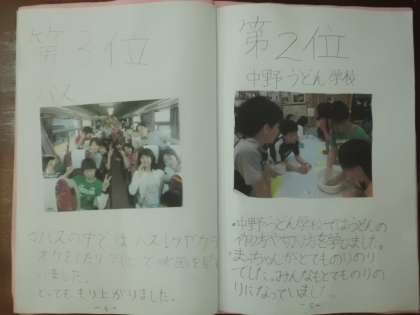 第2位
バス
・バスの中では バスレクやカラ
オケをしたり、 て映画を見
いました。
とってももり上がりました。
第2位
中野うどん学校
・中野うどん学校ではうどんの
作り方や切り方を学びました。
まっちゃんがとてものりのり
でした。みんなもとてものりの
りになっていました。